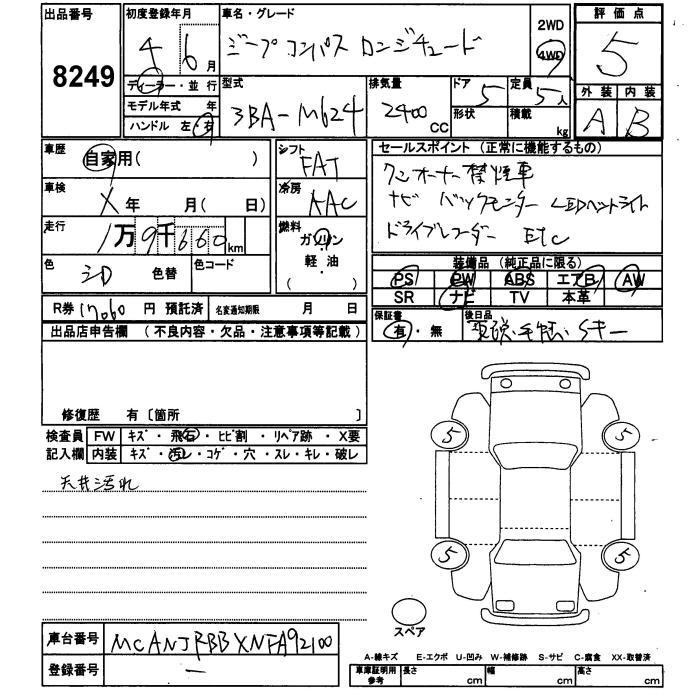 出品番号
8249
初度登録年月
4 6月
車名・グレード
ジープ コンパス ロンジチュード
2WD
4WD
評価点
5
外装 内装
A B
ディーラー・並行
モデル年式 年
ハンドル 左・右
型式
3BA-M624
排気量
2400 CC
ドア 5
形状
定員 5人
積載 kg
車歴
自家用( )
車検
X 年 月( 日)
走行
1万9千660km
色
シロ 色替
色コード
シフト
FAT
冷房
AAC
燃料
ガソリン
軽・油
( )
セールスポイント (正常に機能するもの)
ワンオーナー 禁煙車
ナビ バックモニター LEDヘッドライト
ドライブレコーダー ETC
装備品 (純正品に限る)
PS PW ABS エアB AW
SR ナビ TV 本革
R券 17,060 円 預託済
名変通知期限 月 日
保証書
有・無
後日品
取説・手帳・Sキー
出品店申告欄 (不良内容・欠品・注意事項等記載)
修復歴 有〔箇所 〕
検査員 FW キズ・飛石・ヒビ割・リペア跡・X要
記入欄 内装 キズ・汚レ・コゲ・穴・スレ・キレ・破レ
天井汚れ
5 5
5 5
スペア
車台番号 MCANJRBBXNFA92100
登録番号 —
A-線キズ E-エクボ U-凹み W-補修跡 S-サビ C-腐食 XX-取替済
車庫証明用参考 長さ cm 幅 cm 高さ cm